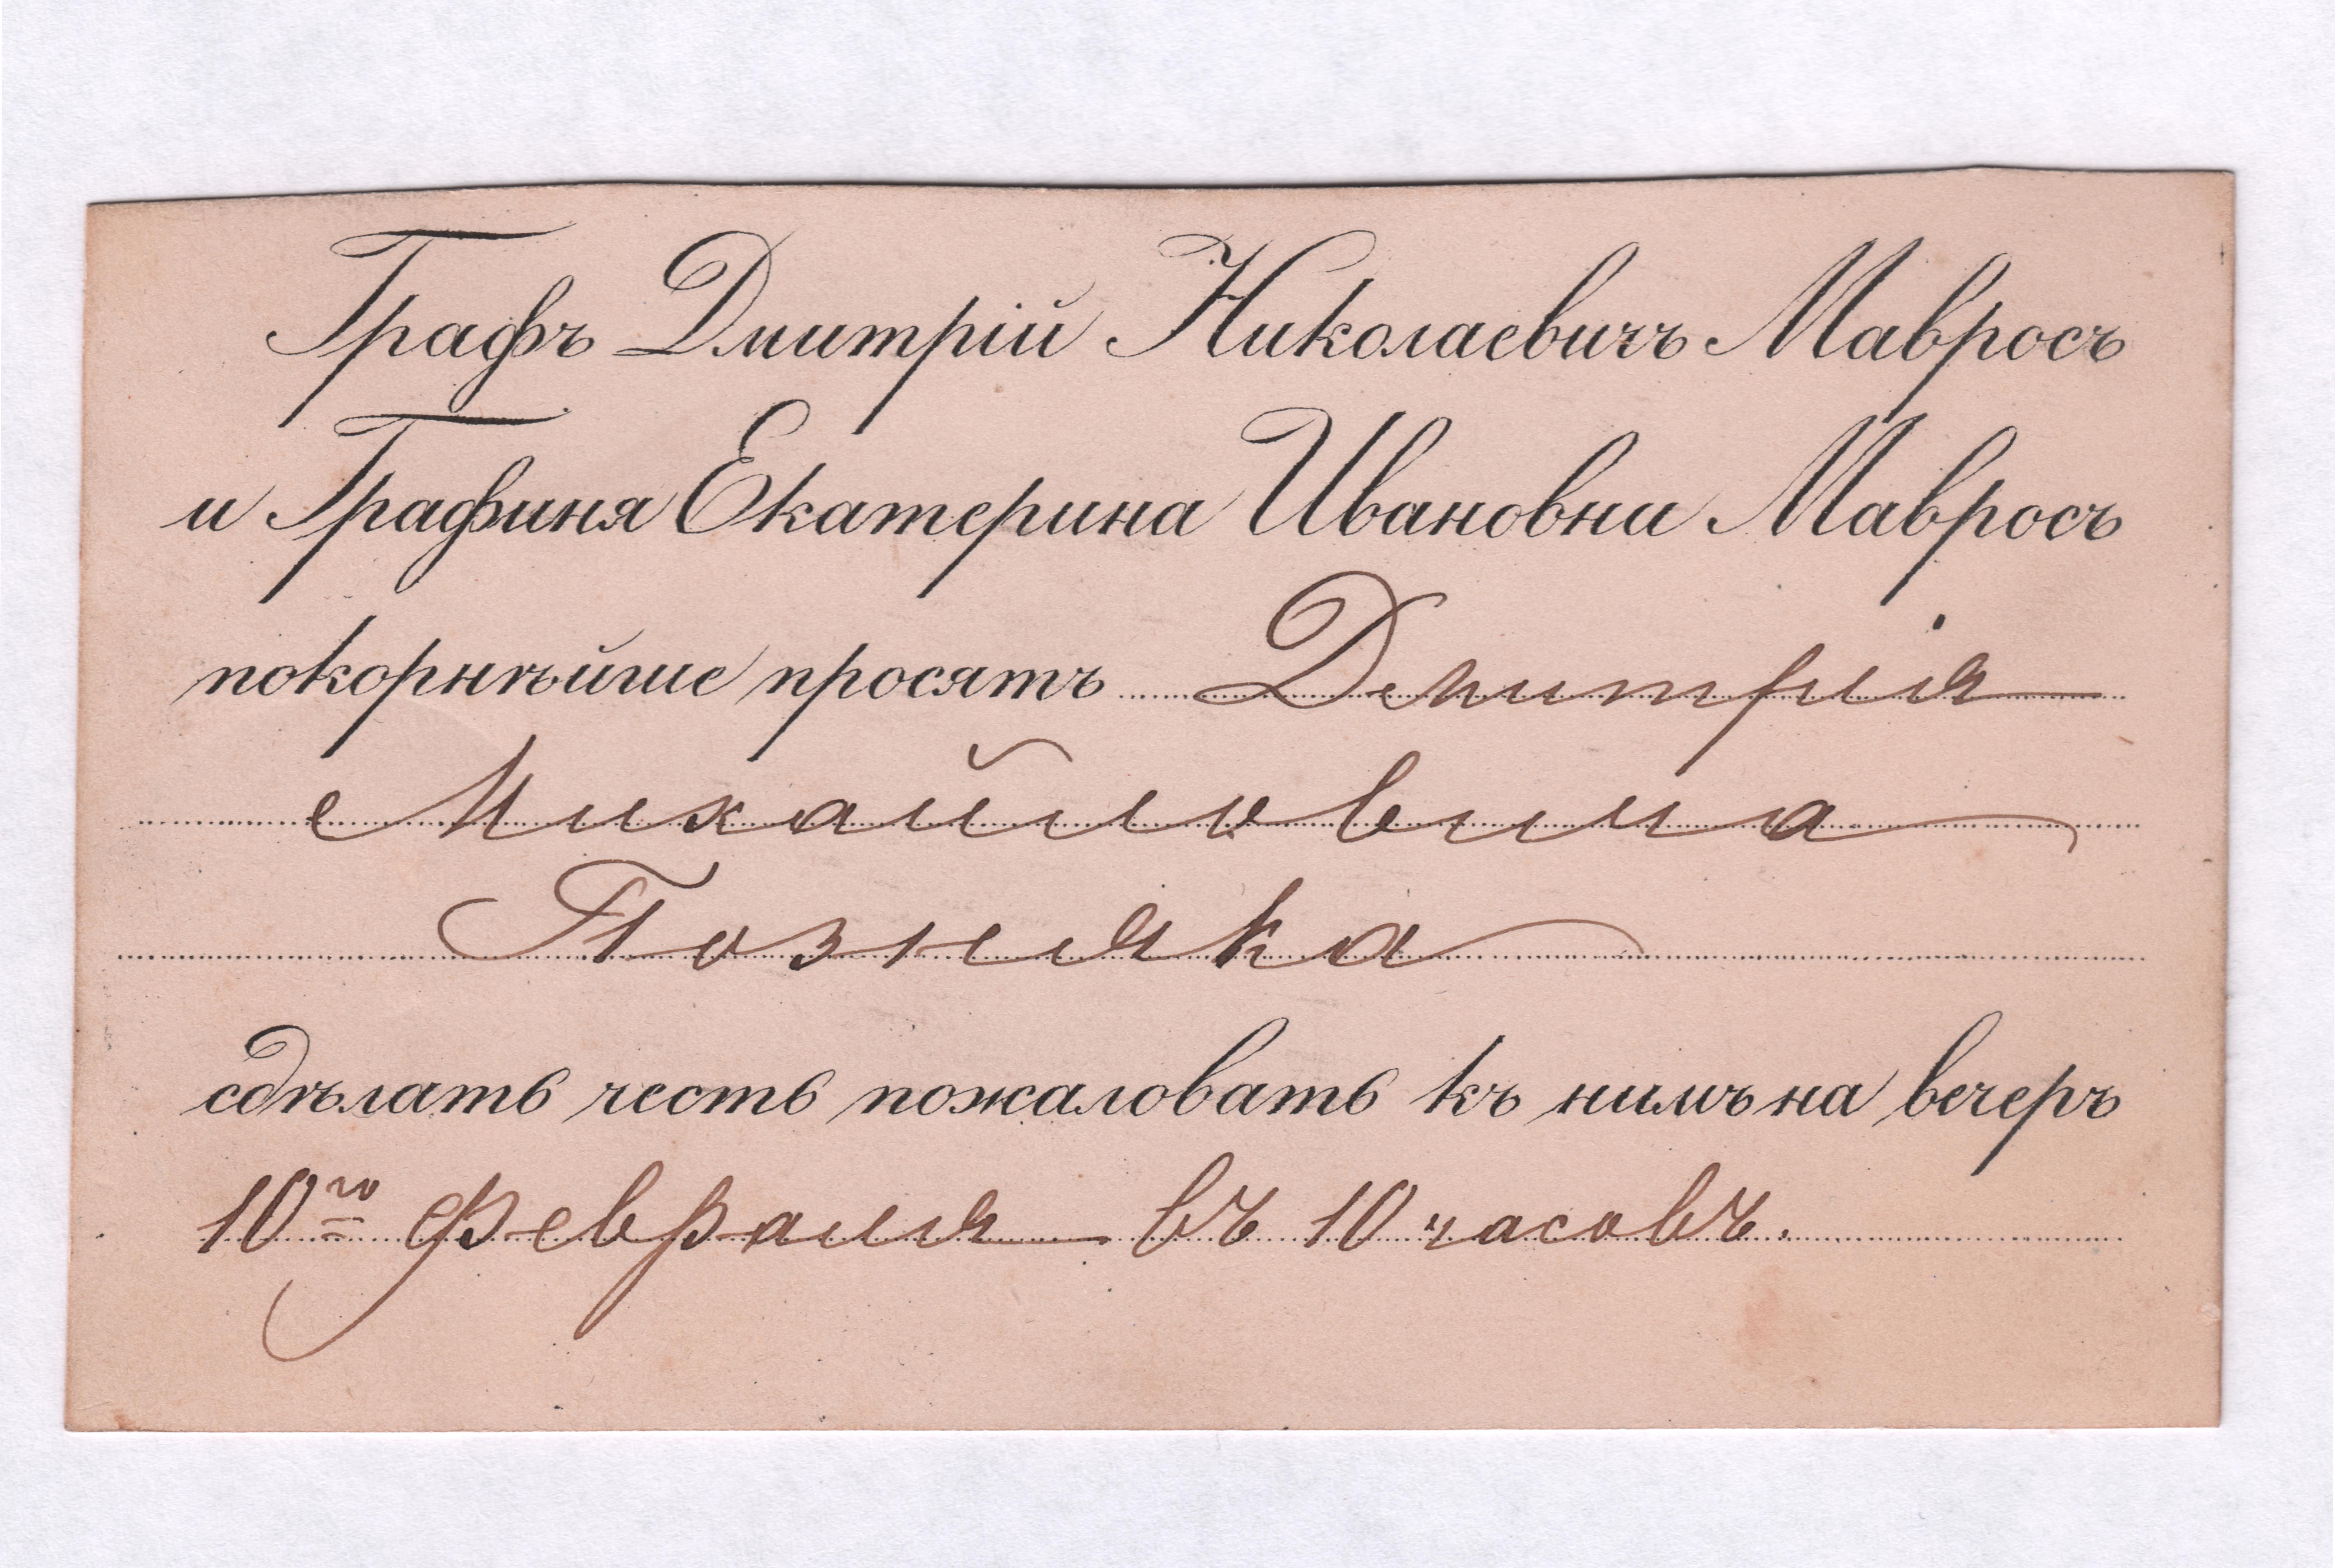 Графъ Дмитрій Николаевичъ Мавросъ
и Графиня Екатерина Ивановна Мавросъ
покорнѣйше просятъ Дмитрія
Михайловича
Позняка
сдѣлать честь пожаловать къ нимъ на вечеръ
10го февраля въ 10 часовъ.